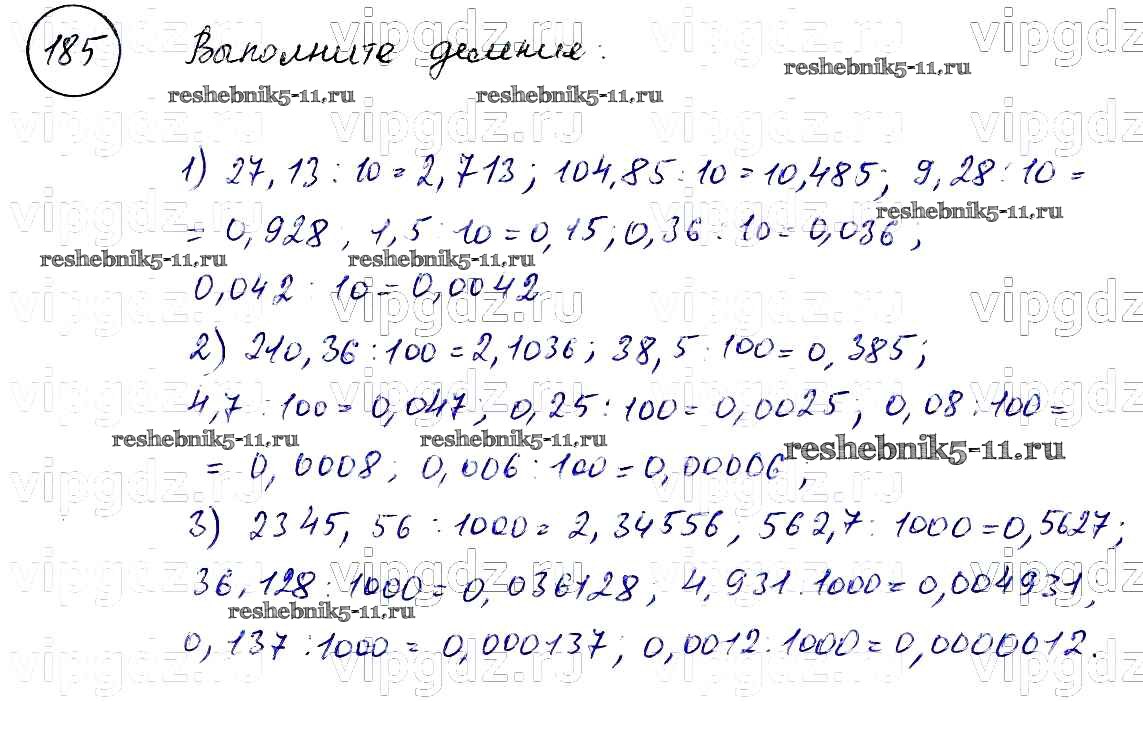 185 Выполните деление:
1) 27,13 : 10 = 2,713; 104,85 : 10 = 10,485; 9,28 : 10 =
= 0,928, 1,5 : 10 = 0,15; 0,36 : 10 = 0,036;
0,042 : 10 = 0,0042
2) 210,36 : 100 = 2,1036; 38,5 : 100 = 0,385;
4,7 : 100 = 0,047; 0,25 : 100 = 0,0025; 0,08 : 100 =
= 0,0008; 0,006 : 100 = 0,00006;
3) 2345,56 : 1000 = 2,34556, 562,7 : 1000 = 0,5627;
36,128 : 1000 = 0,036128; 4,931 : 1000 = 0,004931,
0,137 : 1000 = 0,000137; 0,0012 : 1000 = 0,0000012.
vipgdz.ru
reshebnik5-11.ru